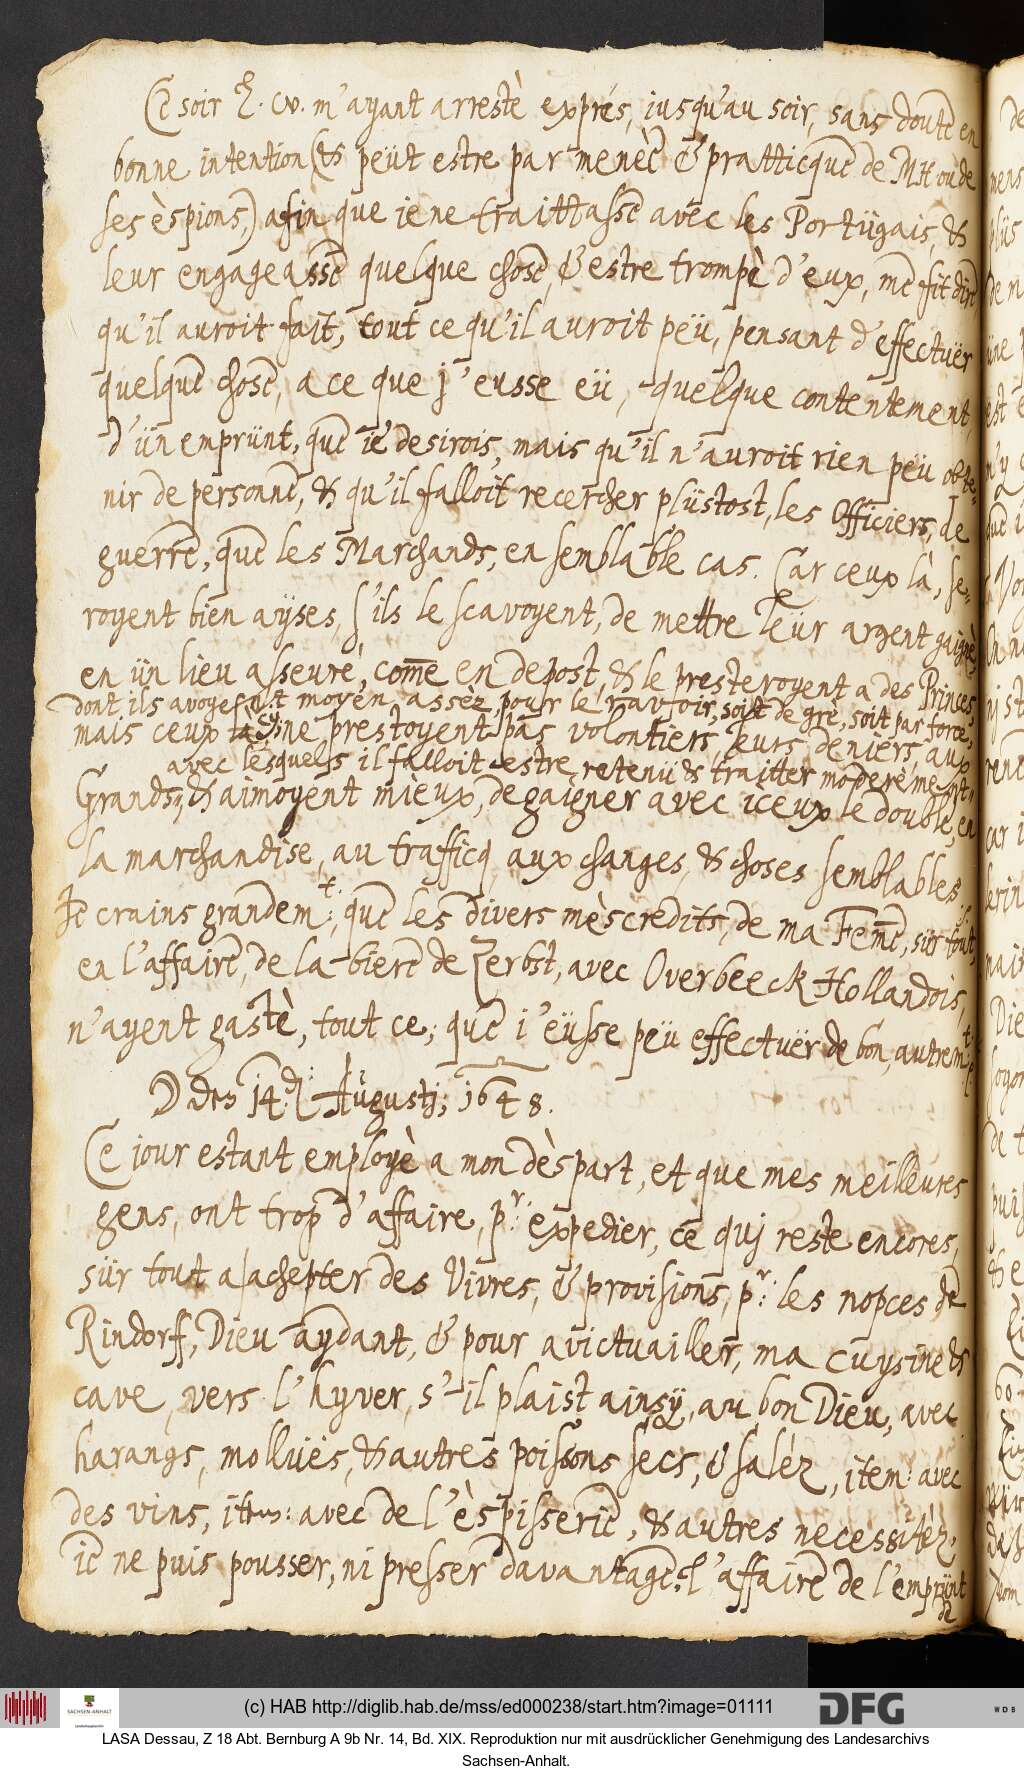 Ce soir E. W. m'ayant arrestè exprés, iusqu'au soir, sans doute en
bonne intention (& peüt estre par menèe & pratticque de MH ou de
ses èspions,) afin que ie ne traittasse avec les Portügais, &
leur engageasse quelque chose, & estre trompè d'eux, me fit dire
qu'il auroit fait, tout ce qu'il auroit peü, pensant d'effectuër
quelque chose, a ce que j'eusse eü, quelque contentement,
d'ün emprünt, que ie desirois, mais qu'il n'auroit rien peü obte-
nir de personne, & qu'il falloit recercher plüstost, les Officiers, de
guerre, que les Marchands, en semblable cas. Car ceux là, se-
royent bien ayses, s'ils le scavoyent, de mettre leur argent gaignè
en ün lieu asseurè, come en depost, & le presteroyent a des Princes
dont ils avoyent moyen assèz, pour le r'avoir, soit de grè, soit par force,
mais ceux cy ne prestoyent pas volontiers, leurs deniers, aux
avec lesquels il falloit estre, retenü & traitter moderèment,
Grands, & aimoyent mieux, de gaigner avec iceux le double, en
la marchandise, au trafficq, aux changes, & choses semblables.
Ie crains grandem.t: que les divers mèscredits, de ma Feme, sür tout,
en l'affaire, de la biere de Zerbst, avec Overbeeck Hollandois,
n'ayent gastè, tout ce, que i'eüsse peü effectuër de bon, autrem.t:
D den 14. Augustj; 1648.
Ce iour estant employè a mon dèspart, et que mes meilleures
gens, ont trop d'affaire, p.r: expedier, ce quj reste encores,
sür tout a achepter des Vivres, & provisions, p.r: les nopces de
Rindorff, Dieu aydant, & pour avictuailler, ma cuysine &
cave, vers l'hyver, s'il plaist ainsy, au bon Dieu, avec
harangs, mollües, & autres poissons secs, & salèz, item: avec
des vins, item: avec de l'èspisserie, & autres necessitèz.
ie ne puis pousser, ni presser davantage, l'affaire de l'emprünt
(c) HAB http://diglib.hab.de/mss/ed000238/start.htm?image=01111
SACHSEN-ANHALT
DFG
WDB
LASA Dessau, Z 18 Abt. Bernburg A 9b Nr. 14, Bd. XIX. Reproduktion nur mit ausdrücklicher Genehmigung des Landesarchivs
Sachsen-Anhalt.